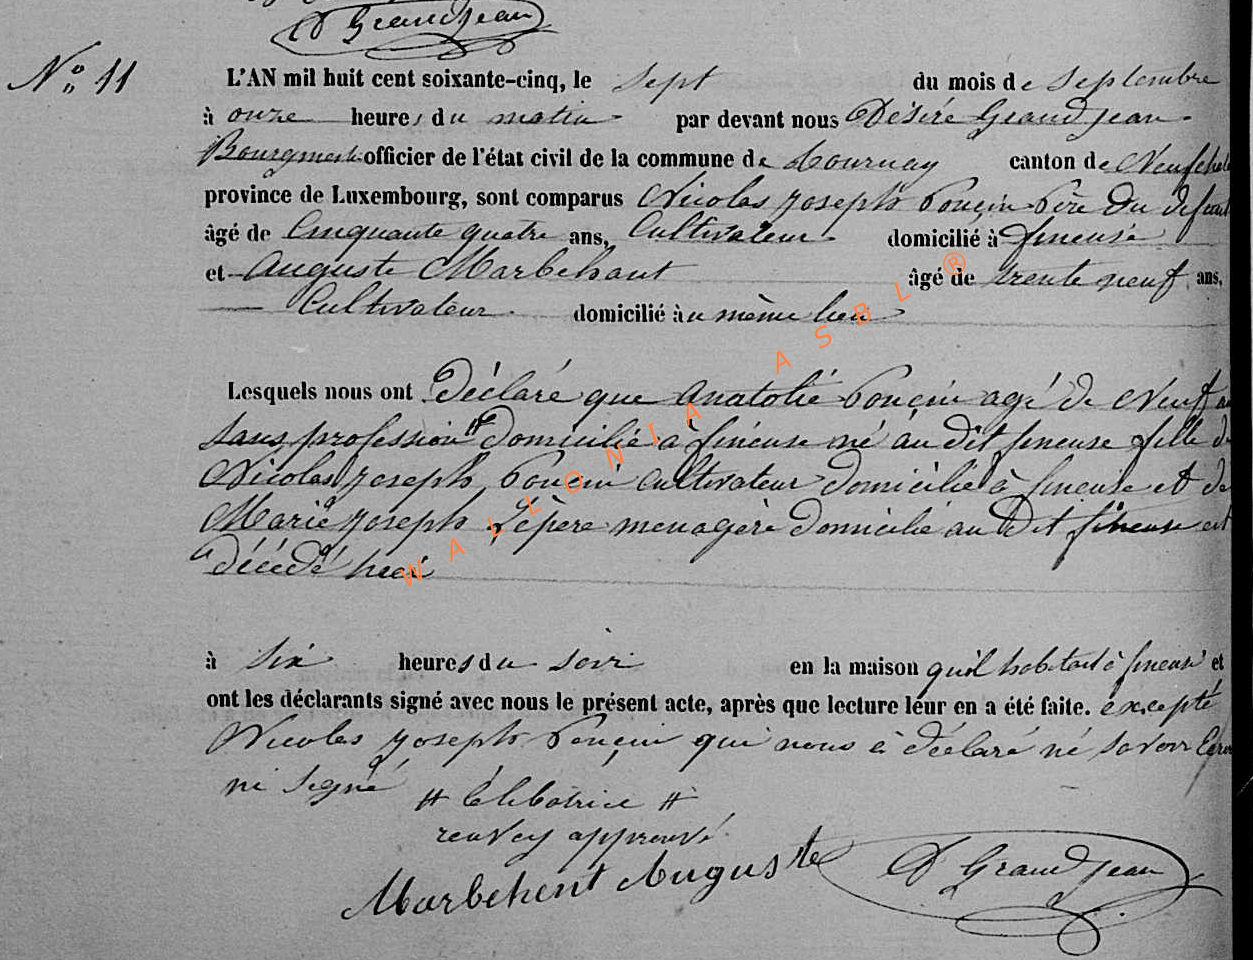 D Grandjean
N° 11
L'AN mil huit cent soixante-cinq, le sept du mois de Septembre
à onze heures du matin par devant nous Désiré Grandjean
Bourgmestre officier de l'état civil de la commune de Tournay canton de Neufchate
province de Luxembourg, sont comparus Nicolas Joseph Ponçin Père du défunt
âgé de Cinquante quatre ans, Cultivateur domicilié à fineuse
et Auguste Marbehant âgé de trente neuf ans,
Cultivateur domicilié au même lieu
Lesquels nous ont Déclaré que Anatolie Ponçin agé de Neuf
sans profession # Domicilié à fineuse né au dit fineuse fille de
Nicolas Joseph Ponçin Cultivateur domicilié à fineuse et de
Marie Joseph ménagère Domicilié au Dit fineuse est
décédé
à six heures du soir en la maison qu'il habitait à fineuse et
ont les déclarants signé avec nous le présent acte, après que lecture leur en a été faite. excepté
Nicolas Joseph Ponçin qui nous à déclaré né savoir
ni signé
# Célibatrice #
renvoy approuvé
Marbehent Auguste D Grandjean
WALLONIA ASBL ®